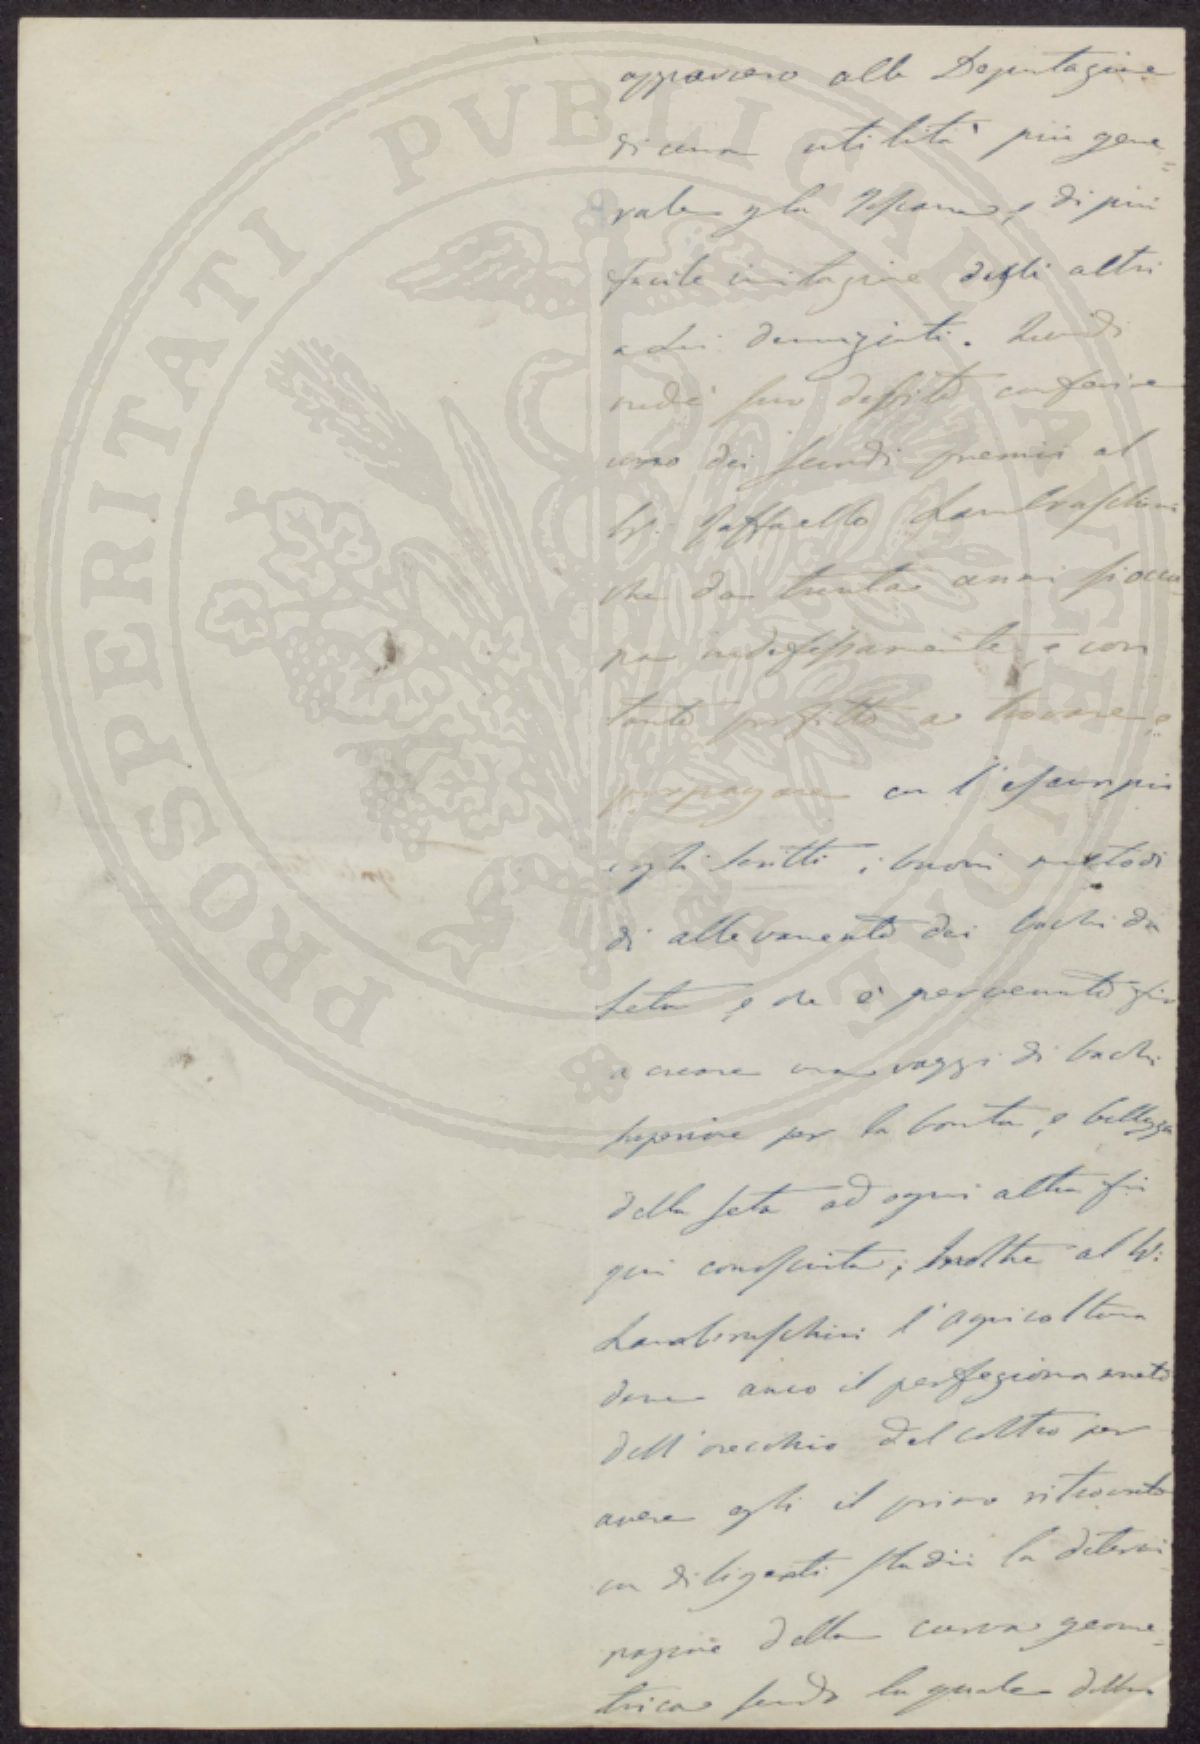 apparvero alla Deputazione
di una utilità più gene=
rale p la Toscana, e di più
facile imitazione degli altri
a Lei dinnanzi
credè suo debito conferire
uno dei secondi premii al
Sig. Raffaello Lambruschini
che da trenta anni si occu-
pa indefessamente, e con
tanto profitto a trovare, e
propagare con l'esempio
cogli scritti, i buoni metodi
di allevamento dei bachi da
seta, e che è pervenuto fin
a creare una razza di bachi
superiore per la bontà, e bellezza
della seta ad ogni altra fin
qui conosciuta; Inoltre al Sig:
Lambruschini l'agricoltura
deve anco il perfezionamento
dell'orecchio del coltro per
avere egli il primo ritrovato
con diligenti studii la determi
nazione della curva geome=
trica secondo la quale detto
PROSPERITATI PVBLICAE AVGENDAE